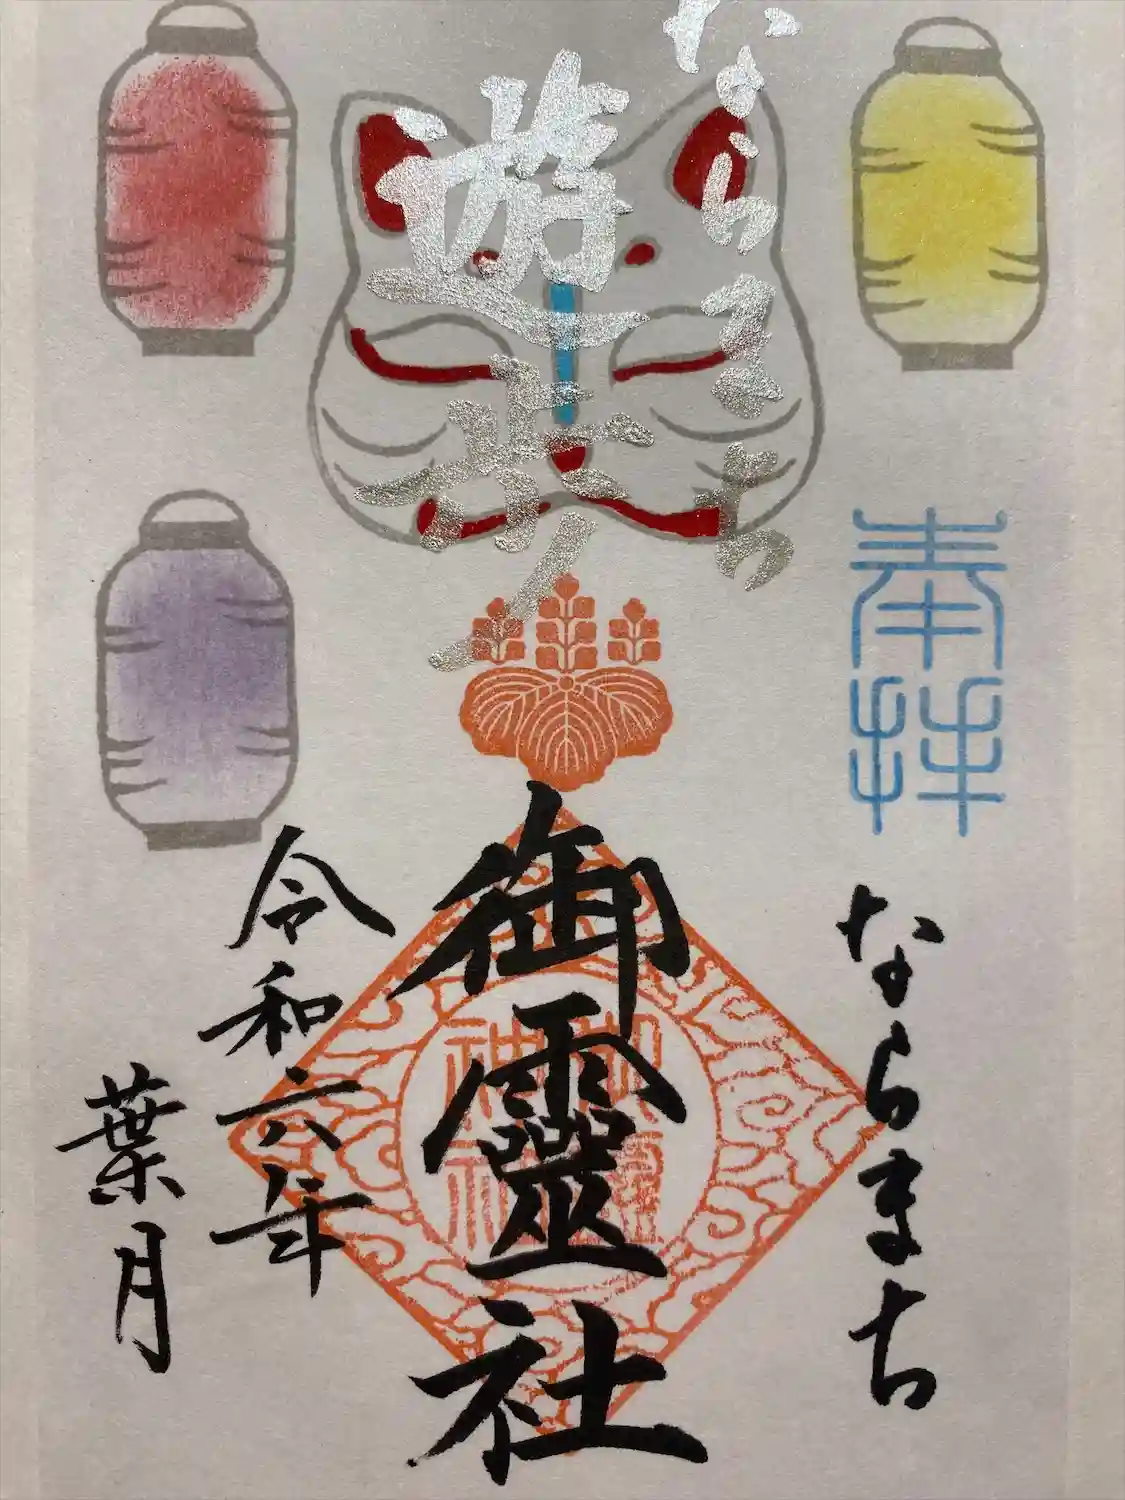 ならまち
遊歩
奉拝
ならまち
御靈社
令和六年
葉月